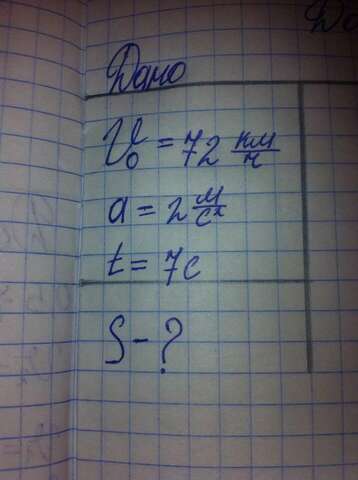 Дано
V₀ = 72 км/ч
a = 2 м/с²
t = 7с
S - ?